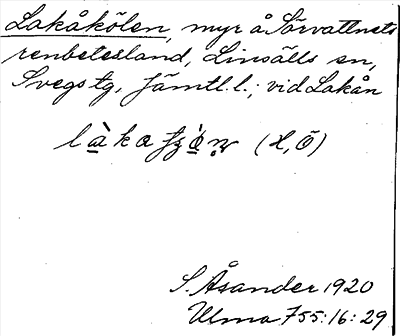 Lakåkölen, myr å Sörvattnets
renbetesland, Linsälls sn,
Svegs tg, Jämtl. l.; vid Lakån
S. Åsander 1920
Ulma 755:16:29